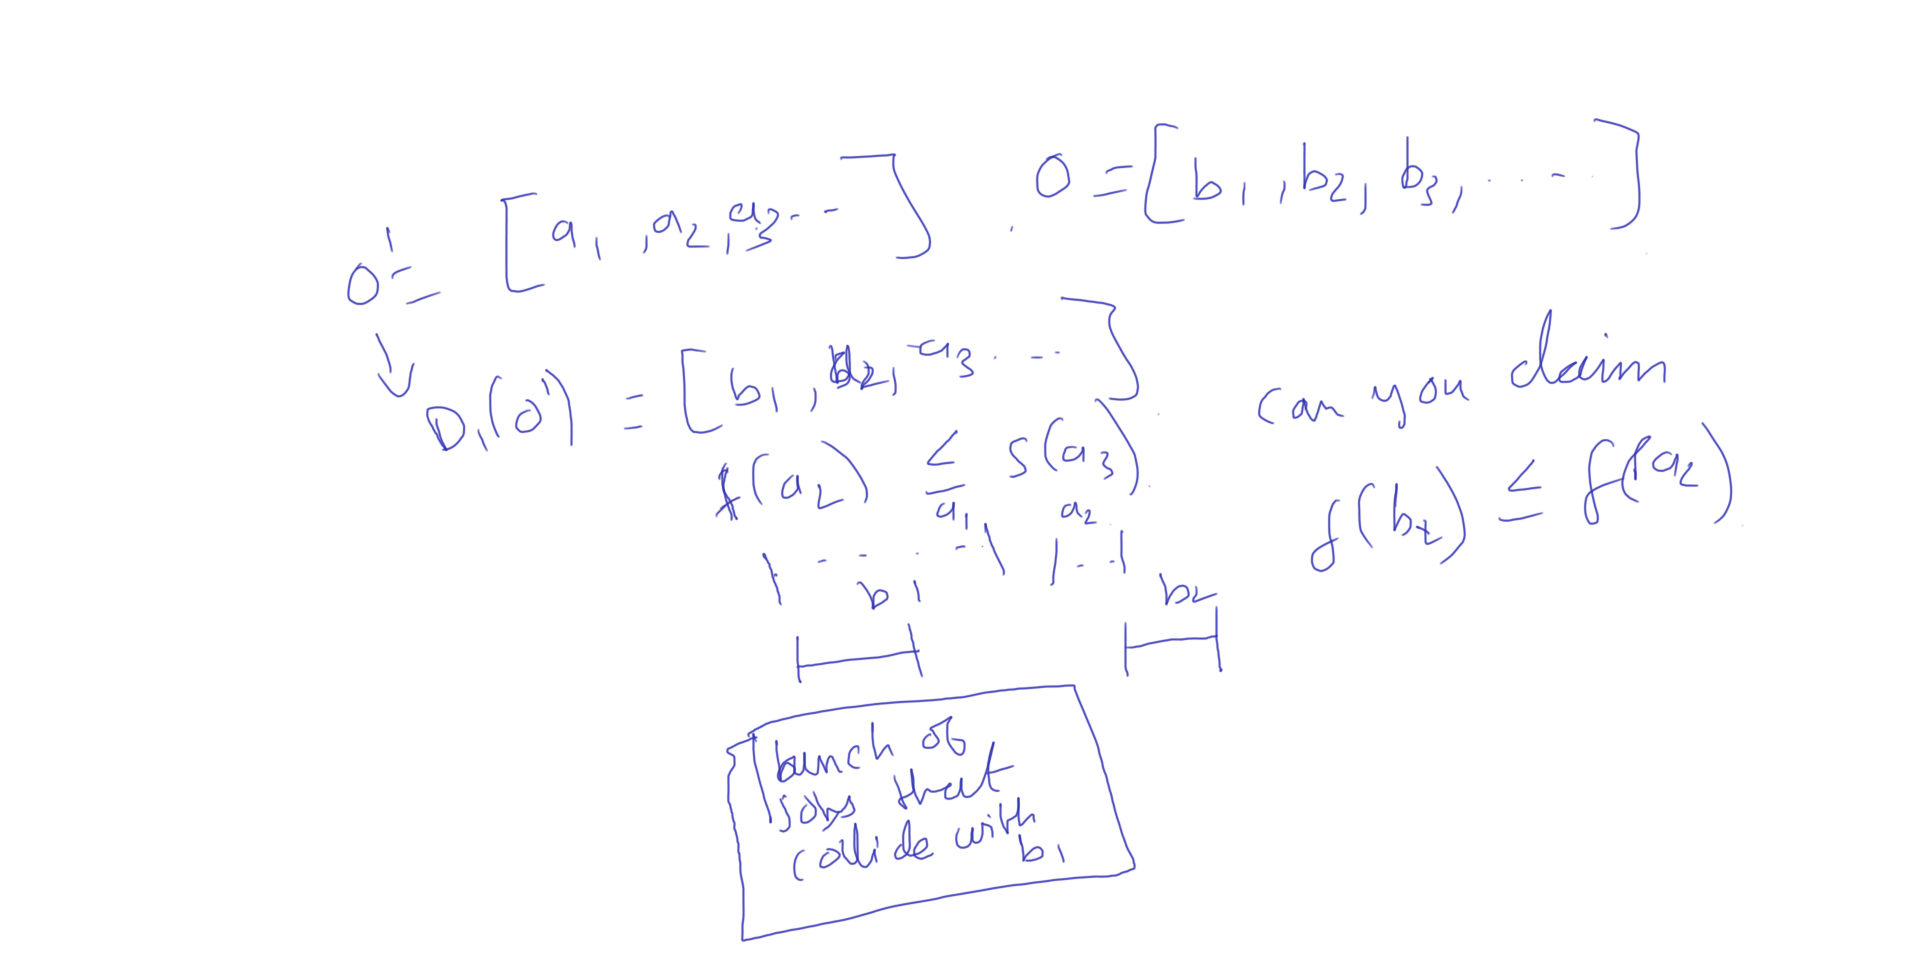 O' = [a1, a2, a3 - -]
O = [b1, b2, b3, ....]
D1(O') = [b1, b2, a3 ....]
can you claim
f(a2) ≤ s(a3)
f(b2) ≤ f(a2)
a1 a2
b1 b2
bunch of
jobs that
collide with
b1